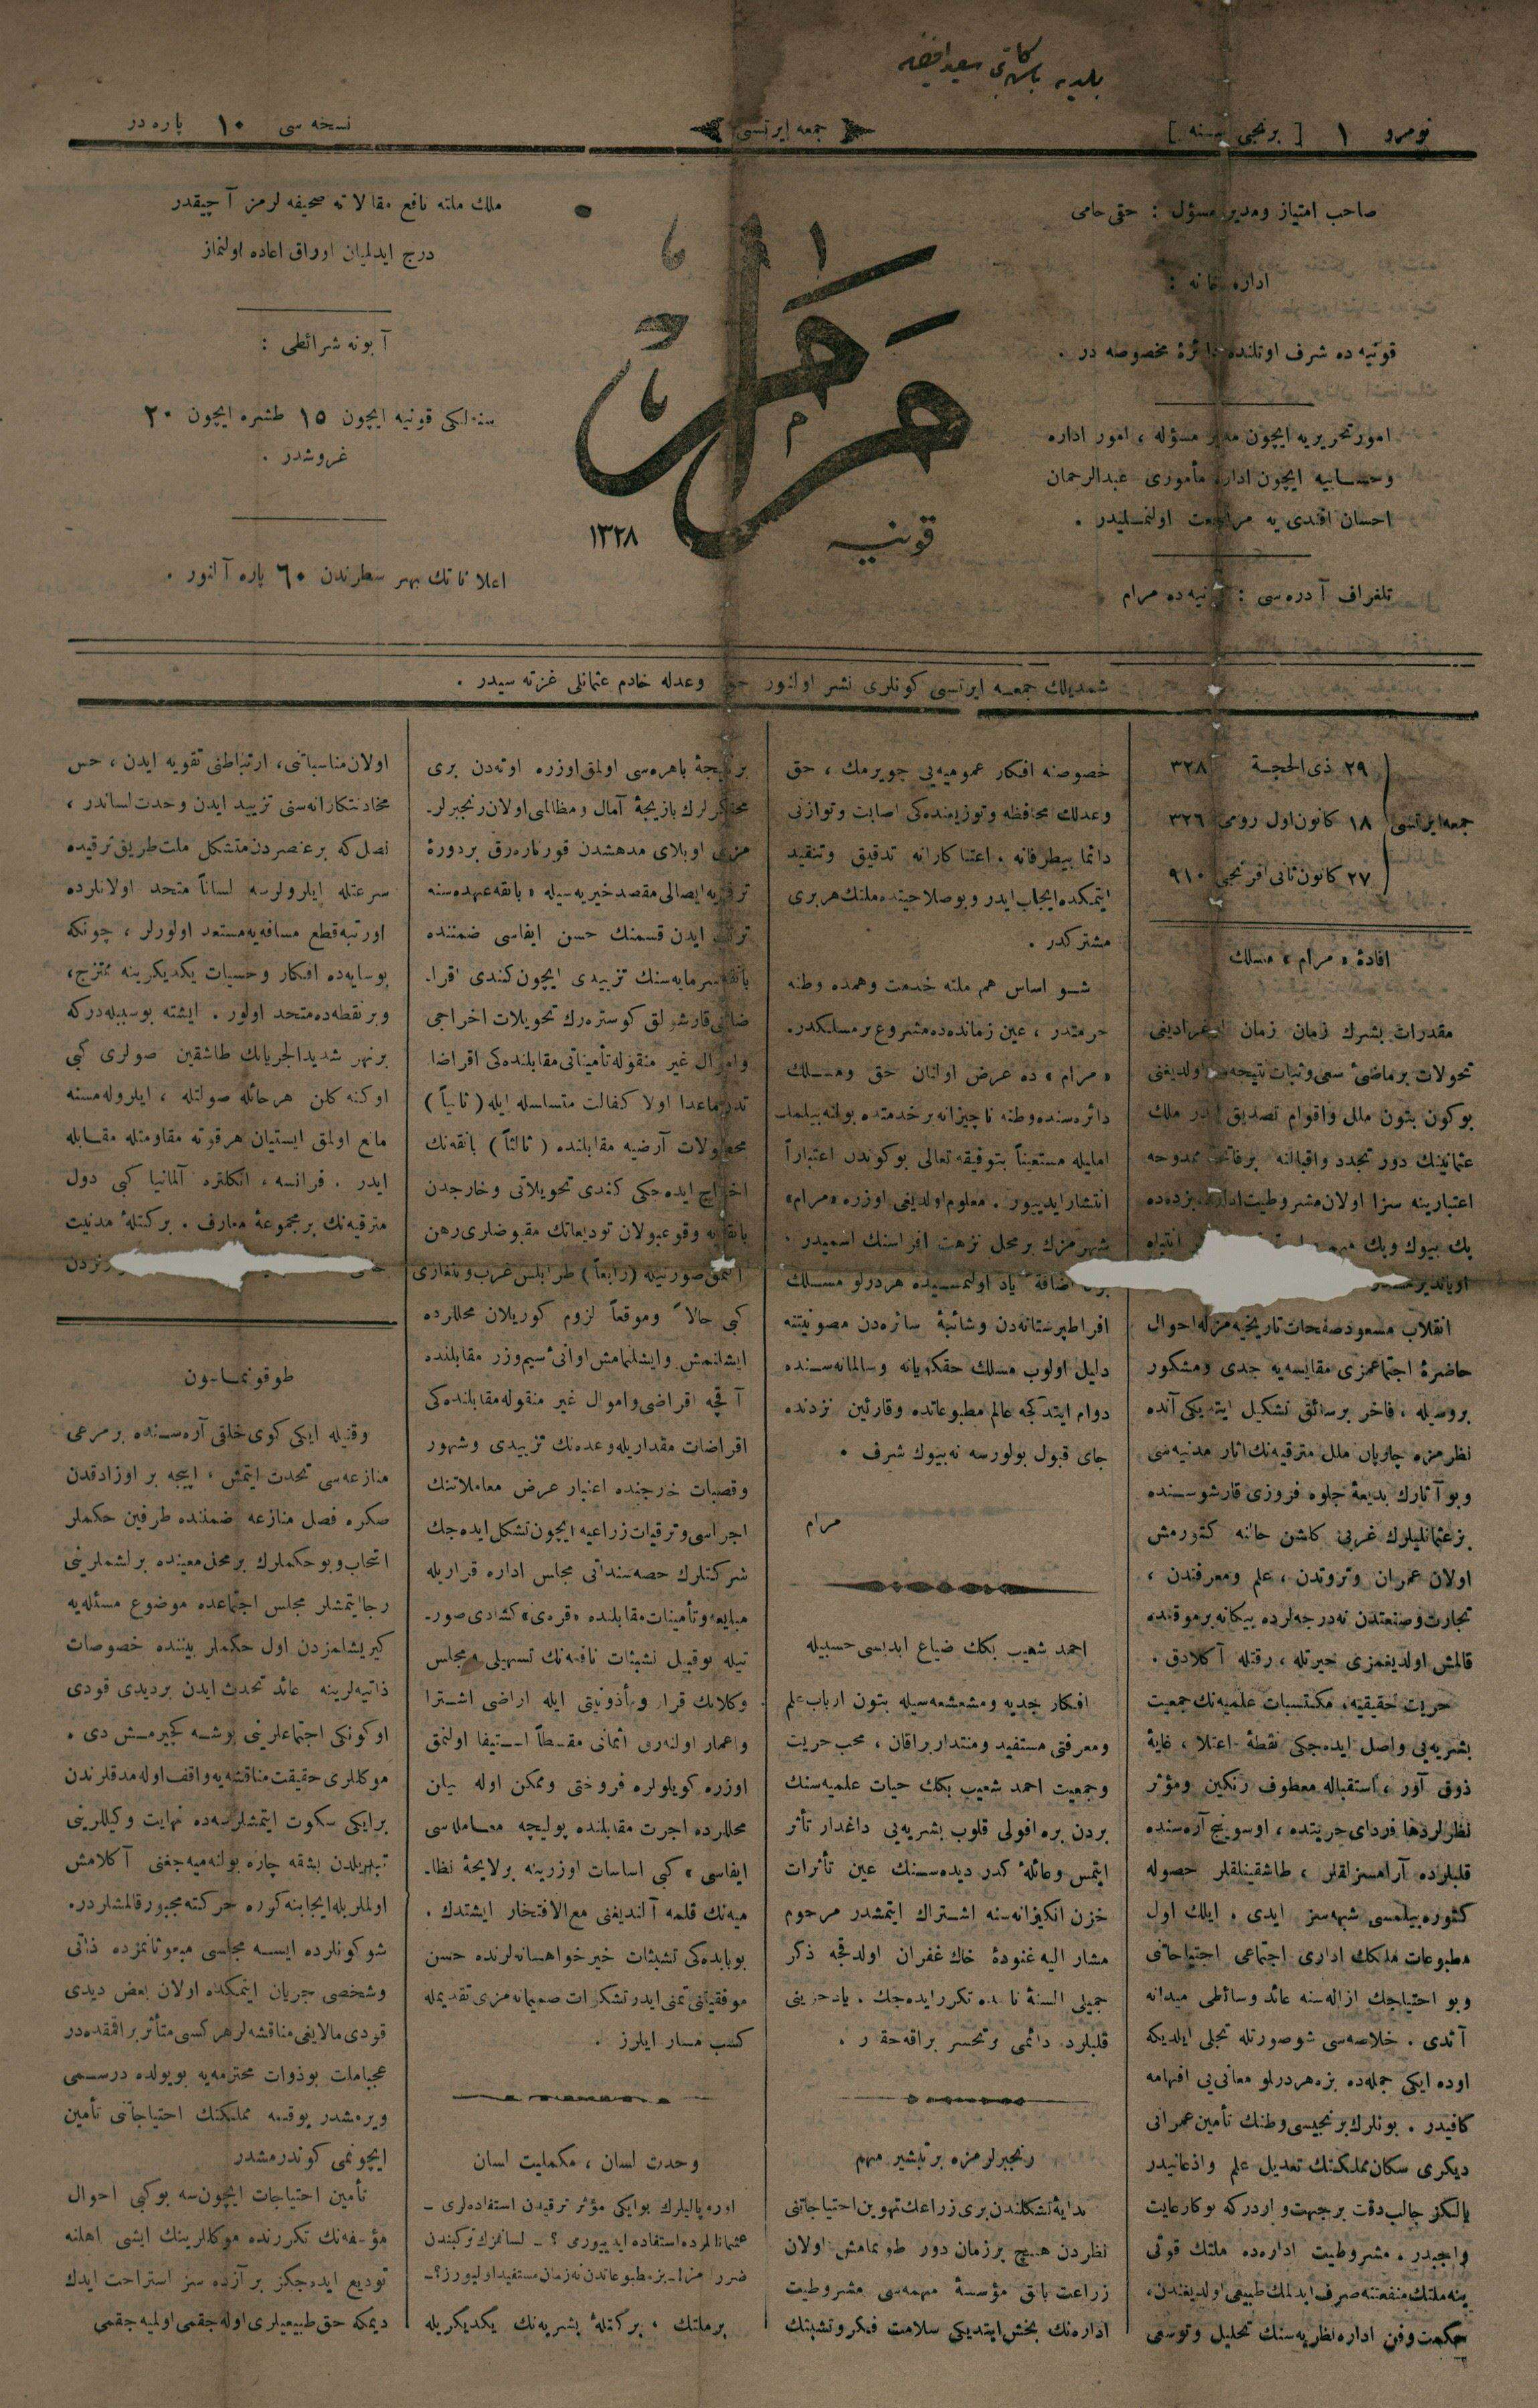 بلديه باش كاتبى سعيد افندى
نومرو ١ [ برنجى سنه ]
جمعه ايرتسى
نسخه سى ١٠ پاره در
صاحب امتياز ومدير مسؤل : حقى حامى
اداره خانه :
قونيه ده شرف اوتلنده دائرۀ مخصوصه در .
امور تحريريه ايچون مدير مسؤله ، امور اداره
وحسابيه ايچون اداره مأمورى عبدالرحمان
احسان افندى يه مراجعت اولنمليدر .
تلغراف آدره سى : قونيه ده مرام
مرام
قونيه
١٣٢٨
ملك ملته نافع مقالاته صحيفه لرمز آچيقدر
درج ايدلميان اوراق اعاده اولنماز
آبونه شرائطى :
سنه لكى قونيه ايچون ١٥ طشره ايچون ٢٠
غروشدر .
اعلاناتك بهر سطرندن ٦٠ پاره آلنور .
شمديلك جمعه ايرتسى كونلرى نشر اولنور حق وعدله خادم عثمانلى غزته سيدر .
جمعه ايرتسى
٢٩ ذى الحجة ٣٢٨
١٨ كانون اول رومى ٣٢٦
٢٧ كانون ثانى افرنجى ٩١٠
افادۀ « مرام » مسلك
مقدرات بشرك زمان زمان
تحولات برماضئ سعى وثبات نتيجه سى اولديغنى
بوكون بتون ملل واقوام تصديق ايدر ملك
عثمانينك دور تجدد واقبالنه
اعتبارينه سزا اولان مشروطيت اداره بزده ده
پك بيوك وپك مهم انتباه
اوياندير
انقلاب مسعود صفحات تاريخيه مزله احوال
حاضرۀ اجتماعمزى مقايسه يه جدى ومشكور
بروسيله ، فاخر برسائق تشكيل ايتديكى آنده
نظرمزه چارپان ملل مترقيه نك اثار مدنيه سى
وبو آثارك بديعۀ جلوه فروزى قارشوسنده
بزعثمانليلرك غربى كاشن حالنه كتورمش
اولان عمران وثروتدن ، علم ومعرفتدن ،
تجارت وصنعتدن نه درجه لرده بيكانه برموقعده
قالمش اولديغمزى حيرتله ، رقتله آكلادق .
حريت حقيقيه ، مكتسبات علميه نك جمعيت
بشريه يى واصل ايده جكى نقطۀ اعتلا ، غايۀ
ذوق آور ، استقباله معطوف رنكين ومؤثر
نظرلردها فرداى حريتده ، اوسونج آره سنده
قلبلرده آرامسزلقلر ، طاشقينلقلر حصوله
كتوره بيلمسى شبهه سز ايدى . ايلك اول
مطبوعات ملكك ادارى اجتماعى احتياجاتنى
وبو احتياجك ازاله سنه عائد وسائطى ميدانه
آتدى . خلاصه سى شوصورتله تجلى ايلديكه
اوده ايكى جمله ده بزه هردرلو معانى يى افهامه
كافيدر . بونلرك برنجيسى وطنك تأمين عمرانى
ديكرى سكان مملكتك تعديل علم واذعانيدر
يالكز جالب دقت برجهت واردركه بوكارعايت
واجبدر . مشروطيت اداره ده ملتك قوتى
ينه ملتك منفعتنه صرف ايدلمك طبيعى اولديغندن ،
حكمت وفن اداره نظريه سنك تحليل وتوسعى
خصوصنه افكار عموميه يى چويرمك ، حق
وعدلك محافظه وتوزيعنده كى اصابت وتوازنى
دائما بيطرفانه ، اعتناكارانه تدقيق وتنقيد
ايتمكده ايجاب ايدر وبو صلاحيتده ملتك هربرى
مشتركدر .
شو اساس هم ملته خدمت وهمده وطنه
حرمتدر ، عين زمانده ده مشروع برمسلكدر .
« مرام » ده عرض اولنان حق ومسلك
دائره سنده وطنه ناچيزانه برخدمتده بولنه بيلمك
امليله مستعيناً بتوفيقه تعالى بوكوندن اعتباراً
انتشار ايدييور . معلوم اولديغى اوزره « مرام »
شهرمزك برمحل نزهت افزاسنك اسميدر .
اضافۀ ياد اولنمسيده هردرلو مسلك
افراطپرستانه دن وشائبۀ سائره دن مصونيتنه
دليل اولوب مسلك حقكويانه وسالمانه سنده
دوام ايتدكجه عالم مطبوعاتده وقارئين نزدنده
جاى قبول بولورسه نه بيوك شرف .
مرام
احمد شعيب بكك ضياع ابديسى حسبيله
افكار جديه ومشعشعه سيله بتون ارباب علم
ومعرفتى مستفيد ومنتدار براقان ، محب حريت
وجمعيت احمد شعيب بكك حيات علميه سنك
بردن بره افولى قلوب بشريه يى داغدار تأثر
ايتمس وعائلۀ كدرديده سنك عين تأثرات
حزن انكيزانه سنه اشتراك ايتمشدر مرحوم
مشار اليه غنودۀ خاك غفران اولدقجه ذكر
جميلى السنۀ ناسده تكرر ايده جك . ياد حزينى
قلبلرده دائمى وتحسر براقه جقدر .
رنجبرلرمزه برتبشير مهم
بداية تشكلندن برى زراعك تهوين احتياجاتنى
نظردن هيچ برزمان دور طوتمامش اولان
زراعت بانق مؤسسۀ مهمه سى مشروطيت
اداره نك بخش ايتديكى سلامت فكر وتشبثك
برنتيجۀ باهره سى اولمق اوزره اوته دن برى
محتكرلرك بازيچۀ آمال ومظالمى اولان رنجبرلر-
مزى اوبلاى مدهشدن قورتاره رق بردورۀ
ترقى يه ايصالى مقصد خيريه سيله « بانقه عهده سنه
ترتب ايدن قسمنك حسن ايفاسى ضمننده
بانقه سرمايه سنك تزييدى ايچون كندى اقرا-
ضاتى قارشولق كوستره رك تحويلات اخراجى
واموال غير منقوله تأميناتى مقابلنده كى اقراضا
تدن ماعدا اولا كفالت متسلسله ايله ( ثانياً )
محصولات آرضيه مقابلنده ( ثالثاً ) بانقه نك
اخراج ايده جكى كندى تحويلاتى وخارجدن
بانقه يه وقوعبولان توديعاتك مقبوضلرى رهن
ايتمق صورتيله ( رابعاً ) طرابلس غرب وبنغازى
كبى حالاً وموقعاً لزوم كوريلان محللرده
ايشلنمش وايشلنمامش اوانئ سيم وزر مقابلنده
آقچه اقراضى واموال غير منقوله مقابلنده كى
اقراضات مقداريله وعده نك تزييدى وشهور
وقصبات خارجنده اعتبار عرض معاملاتنك
اجراسى وترقيات زراعيه ايچون تشكل ايده جك
شركتلرك حصه سنداتى مجلس اداره قراريله
مبايعه وتأمينات مقابلنده « قره دى » كشادى صور-
تيله بوقبيل تشبثات نافعه نك تسهيلى ومجلس
وكلانك قرار ومأذونيتى ايله اراضى اشترا
واعمار اولنه رق اثمانى مقسطاً استيفا اولنمق
اوزره كويلولره فروختى وممكن اوله بيلن
محللرده اجرت مقابلنده پوليچه معامله سى
ايفاسى » كبى اساسات اوزرينه برلايحۀ نظا-
ميه نك قلمه آلنديغنى مع الافتخار ايشتدك .
بوبابده كى تشبثات خيرخواهانه لرنده حسن
موفقياتى تمنى ايدر تشكرات صميمانه مزى تقديمله
كسب مسار ايلرز .
وحدت لسان ، مكمليت لسان
اوروپاليلرك بوايكى مؤثر ترقيدن استفاده لرى ـ
عثمانلالرده استفاده ايدييورمى ؟ ـ لسانمزك تركبندن
ضررلرمز ! ـ بزه مطبوعاتدن نه زمان مستفيد اولييورز ؟ ـ
برملتك ، بركتلۀ بشريه نك يكديكريله
اولان مناسباتنى ، ارتباطنى تقويه ايدن ، حس
مخادنتكارانه سنى تزييد ايدن وحدت لساندر ،
نصل كه برعنصردن متشكل ملت طريق ترقيده
سرعتله ايلرولرسه لساناً متحد اولانلرده
اورتبه قطع مسافه يه مستعد اولورلر ، چونكه
بوسايه ده افكار وحسيات يكديكرينه ممتزج ،
وبرنقطه ده متحد اولور . ايشته بوسببله دركه
برنهر شديد الجريانك طاشقين صولرى كبى
اوكنه كلن هرحائله صولتله ، ايلرولمسنه
مانع اولمق ايستيان هرقوته مقاومتله مقابله
ايدر . فرانسه ، انكلتره آلمانيا كبى دول
مترقيه نك برمجموعۀ معارف . بركتلۀ مدنيت
طوقونماسون
وقتيله ايكى كوى خلقى آره سنده برمرعى
منازعه سى تحدث ايتمش ، ايپيجه بر اوزادقدن
صكره فصل منازعه ضمننده طرفين حكملر
انتخاب وبوحكملرك برمحل معينده برلشملرينى
رجا ايتمشلر مجلس اجتماعده موضوع مسئله يه
كيريشلمزدن اول حكملر بيننده خصوصات
ذاتيه لرينه عائد تحدث ايدن برديدى قودى
اوكونكى اجتماعلرينى بوشه كچيرمش دى .
موكللرى حقيقت مناقشه يه واقف اوله مدقلرندن
برايكى سكوت ايتمشلرسه ده نهايت وكيللرينى
تبديلدن بشقه چاره بولنه ميه جغنى آكلامش
اولملريله ايجابنه كوره حركته مجبور قالمشلردر .
شوكونلرده ايسه مجلسى مبعوثانمزده ذاتى
وشخصى جريان ايتمكده اولان بعض ديدى
قودى مالايغى مناقشه لر هركسى متأثر براقمقده در
عجباملت بوذوات محترمه يه بويولده درسمى
ويرمشدر يوقسه مملكتك احتياجاتنى تأمين
ايچونمى كوندرمشدر
تأمين احتياجات ايچون سه بوكبى احوال
مؤسفه نك تكررنده موكللرينك ايشى اهلنه
توديع ايده جكز برآزده سز استراحت ايدك
ديمكه حق طبيعيلرى اوله جقمى اولميه جقمى